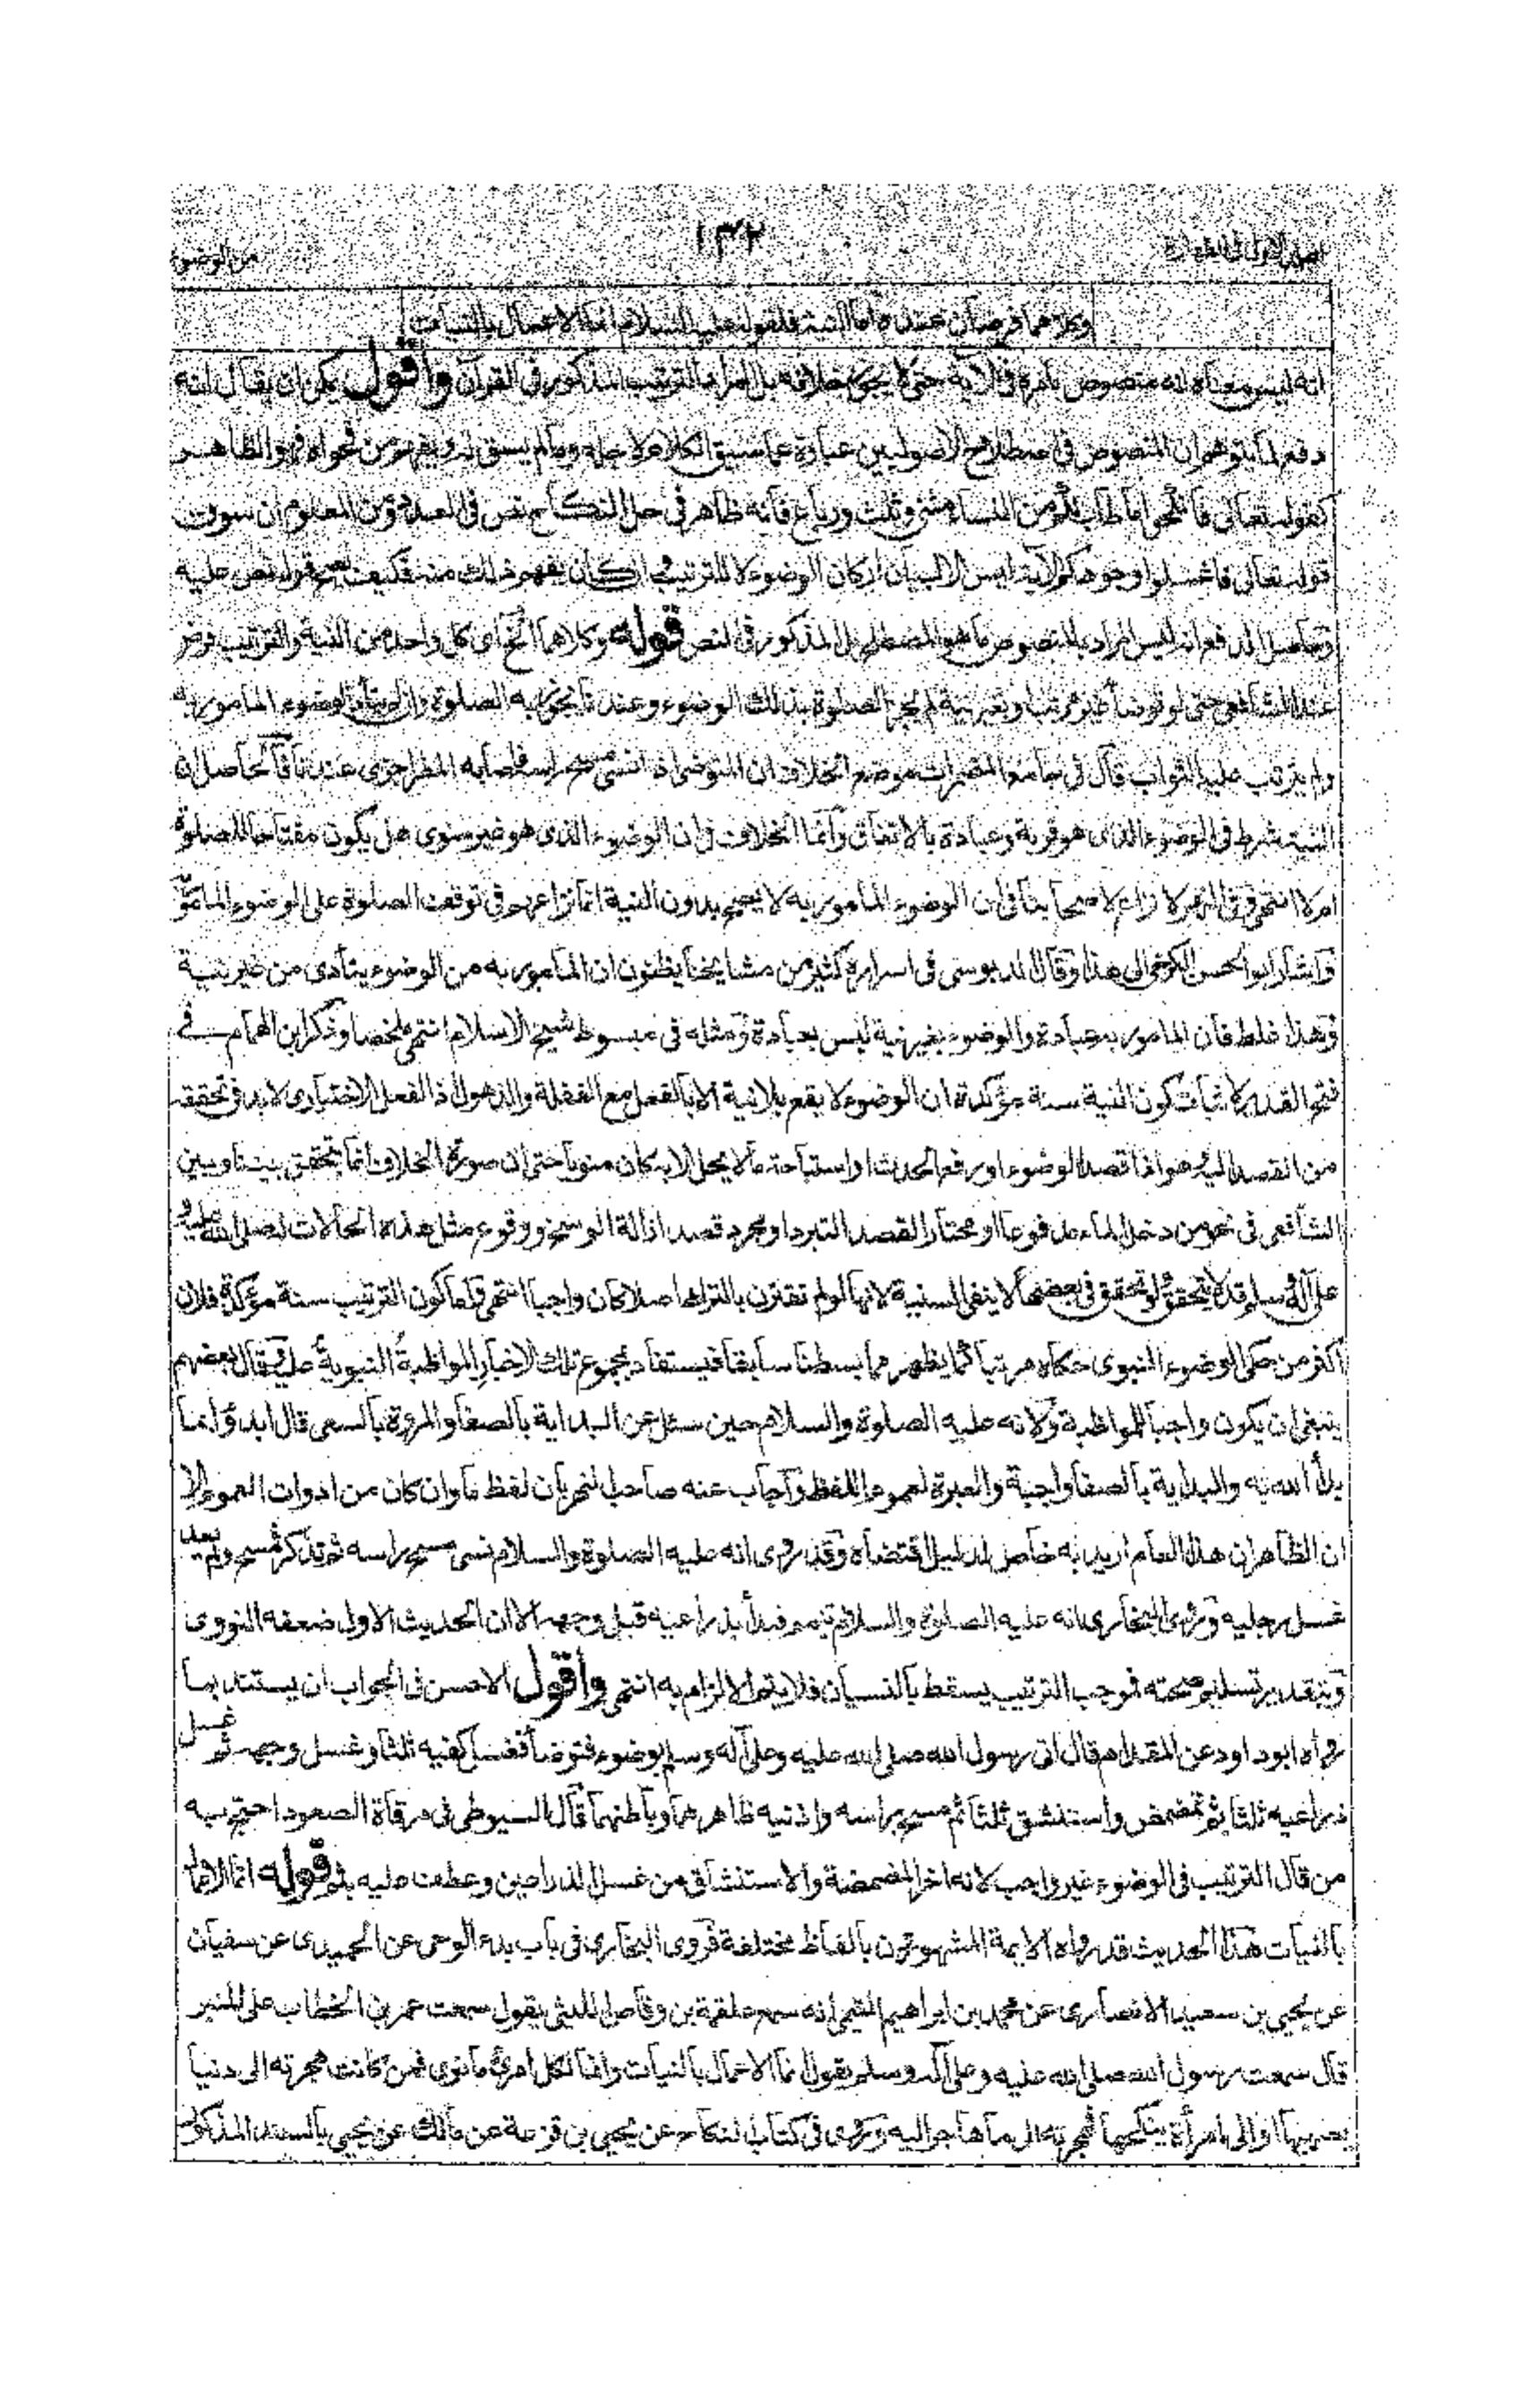 ١٣٢
من الوضوء
وكلاهما فرضان عنده اما النية فلقوله عليه السلام انما الاعمال بالنيات
انه ليس معناه انه منصوص بامره في الآية حتى لا يجوز خلافه بل المراد الترتيب المذكور في القرآن واقول يمكن ان يقال انه
دفع لما يتوهم ان المنصوص في اصطلاح الاصوليين عبارة عما سيق الكلام لاجله وما لم يسق له ويفهم من فحواه فهو الظاهر
كقوله تعالى فانكحوا ما طاب لكم من النساء مثنى وثلث ورباع فانه ظاهر في حل النكاح نص في العدد ومن المعلوم ان سوق
قوله تعالى فاغسلوا وجوهكم الآية ليس الا لبيان اركان الوضوء لا للترتيب وان كان يفهم ذلك منه فكيف يصح قوله نص عليه
وحاصل الدفع انه ليس المراد بالمنصوص ما هو المصطلح بل المذكور في النص قوله وكلاهما الخ اى كل واحد من النية والترتيب فرض
عند الشافعي حتى لو توضأ غير مرتب او بغير نية لم يجز الصلوة بذلك الوضوء وعندنا يجوز به الصلوة وان لم يتأد الوضوء المامور به
ولم يترتب عليه الثواب قال في جامع المضمرات موضع الخلاف ان المتوضى اذا نسى مسح راسه فاصابه المطر اجزى عندنا فالحاصل ان
النية شرط في الوضوء الذى هو قربة وعبادة بالاتفاق وانما الخلاف في ان الوضوء الذى هو غير منوى هل يكون مفتاحا للصلوة
ام لا انتهى وفى النهر لا نزاع لاصحابنا في ان الوضوء المامور به لا يصح بدون النية انما نزاعهم في توقف الصلوة على الوضوء المامور
واشار ابو الحسن الكرخى الى هذا وقال الدبوسى في اسراره كثير من مشايخنا يظنون ان المامور به من الوضوء يتأدى من غير نية
وهذا غلط فان المامور به عبادة والوضوء بغير نية ليس بعبادة ومثله في مبسوط شيخ الاسلام انتهى ملخصا وذكر ابن الهمام في
فتح القدير لاثبات كون النية سنة مؤكدة ان الوضوء لا يقع بلا نية الا بالفعل مع الغفلة والذهول اذ الفعل الاختيارى لا بد في تحققه
من القصد اليه وهو اذا قصد الوضوء او رفع الحدث او استباحة ما لا يحل الا به كان منويا حتى ان صورة الخلاف انما يتحقق بيننا وبين
الشافعى في نحو من دخل الماء مدفوعا او مختارا لقصد التبرد او مجرد قصد ازالة الوسخ ووقوع مثل هذه الحالات لصلى الله عليه و
على آله وسلم قد لا يتحقق ولو تحقق في بعضها لا ينفى السنية لانها لو لم تقترن بالترك اصلا كان واجبا انتهى واما كون الترتيب سنة مؤكدة فلان
اكثر من حكى الوضوء النبوى حكاه مرتبا كما يظهر مما بسطنا سابقا فيستفاد بمجموع تلك الاخبار المواظبة النبوية عليه وقال بعضهم
ينبغى ان يكون واجبا للمواظبة ولانه عليه الصلوة والسلام حين سئل عن البداية بالصفا والمروة بالسعى قال ابدؤا بما
بدأ الله به والبداية بالصفا واجبة والعبرة لعموم اللفظ واجاب عنه صاحب النهر بان لفظ ما وان كان من ادوات العموم الا
ان الظاهر ان هذا العام اريد به خاص لدليل اقتضاه وقد روى انه عليه الصلوة والسلام نسى مسح راسه ثم تذكر فمسح ولم يعد
غسل رجليه وروى البخارى انه عليه الصلوة والسلام تيمم فبدأ بذراعيه قبل وجهه الا ان الحديث الاول ضعفه النووى
وبتقدير تسليم صحته فوجب الترتيب يسقط بالنسيان فلا يتم الالزام به انتهى واقول الاحسن في الجواب ان يستند بما
رواه ابو داود عن المقدام قال اتى رسول الله صلى الله عليه وعلى آله وسلم بوضوء فتوضأ فغسل كفيه ثلثا وغسل وجهه ثم غسل
ذراعيه ثلثا ثم تمضمض واستنشق ثلثا ثم مسح براسه واذنيه ظاهرهما وباطنهما قال السيوطى في مرقاة الصعود احتج به
من قال الترتيب في الوضوء غير واجب لانه اخر المضمضة والاستنشاق من غسل الذراعين وعطف عليه بثم قوله انما الاعمال
بالنيات هذا الحديث قد رواه الايمة المشهورون بالفاظ مختلفة فروى البخارى في باب بدء الوحى عن الحميدى عن سفيان
عن يحيى بن سعيد الانصارى عن محمد بن ابراهيم التيمى انه سمع علقمة بن وقاص الليثى يقول سمعت عمر بن الخطاب على المنبر
قال سمعت رسول الله صلى الله عليه وعلى آله وسلم يقول انما الاعمال بالنيات وانما لكل امرئ ما نوى فمن كانت هجرته الى دنيا
يصيبها او الى امرأة ينكحها فهجرته الى ما هاجر اليه وروى في كتاب النكاح عن يحيى بن قزعة عن مالك عن يحيى بالسند المذكور